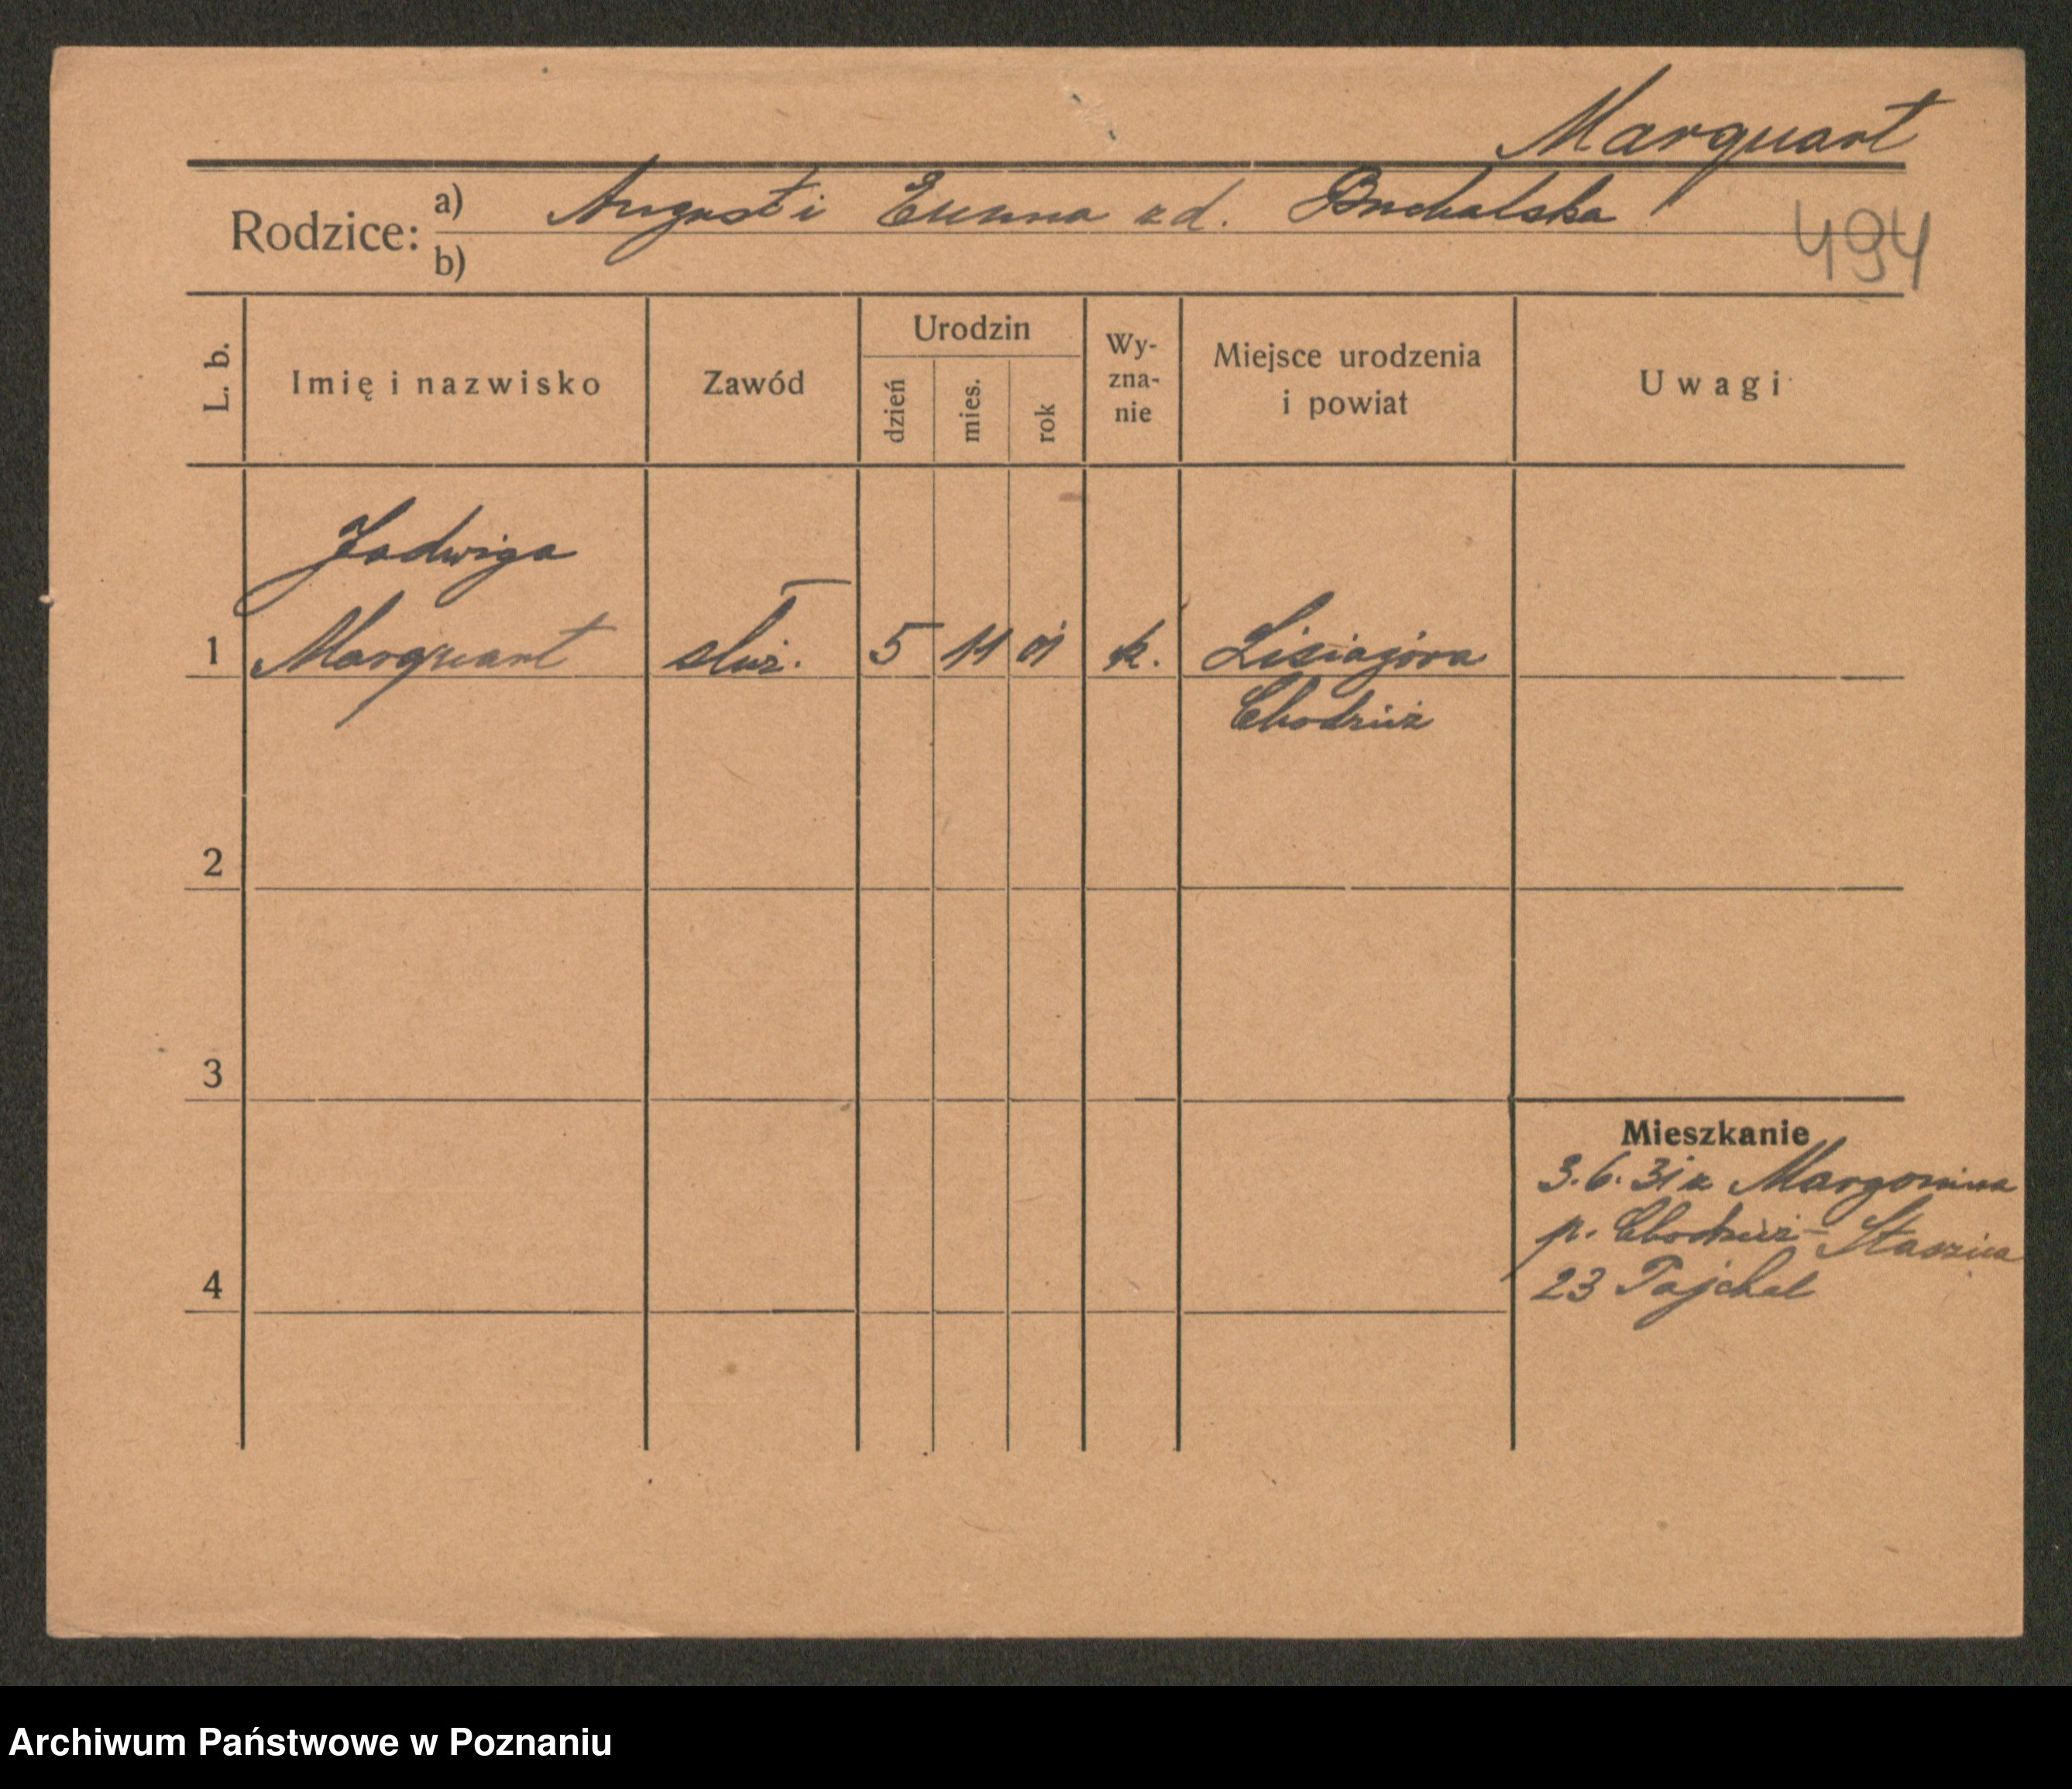 Marquart
Rodzice: a) August i Emma zd. Buchalska
b)
494
L. b.
Imię i nazwisko
Zawód
Urodzin
dzień
mies.
rok
Wy-
zna-
nie
Miejsce urodzenia
i powiat
Uwagi
Jadwiga
1 Marquart służ. 5 11 01 k. Lisiagóra
Chodzież
2
3
4
Mieszkanie
3.6.31 z Margonina
p. Chodzież - Staszica
23 Pajchel
Archiwum Państwowe w Poznaniu